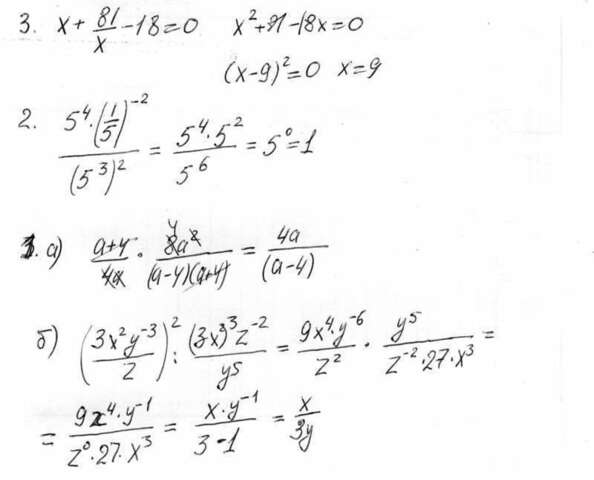 3. x + 81/x - 18 = 0   x² + 81 - 18x = 0
(x-9)² = 0   x = 9
2. 5⁴·(1/5)⁻² / (5³)² = 5⁴·5² / 5⁶ = 5⁰ = 1
1. а) a+4 / 4a · 8a² / (a-4)(a+4) = 4a / (a-4)
б) (3x²y⁻³ / z)² : (3x)³z⁻² / y⁵ = 9x⁴·y⁻⁶ / z² · y⁵ / z⁻²·27·x³ =
= 9x⁴·y⁻¹ / z⁰·27·x³ = x·y⁻¹ / 3·1 = x / 3y